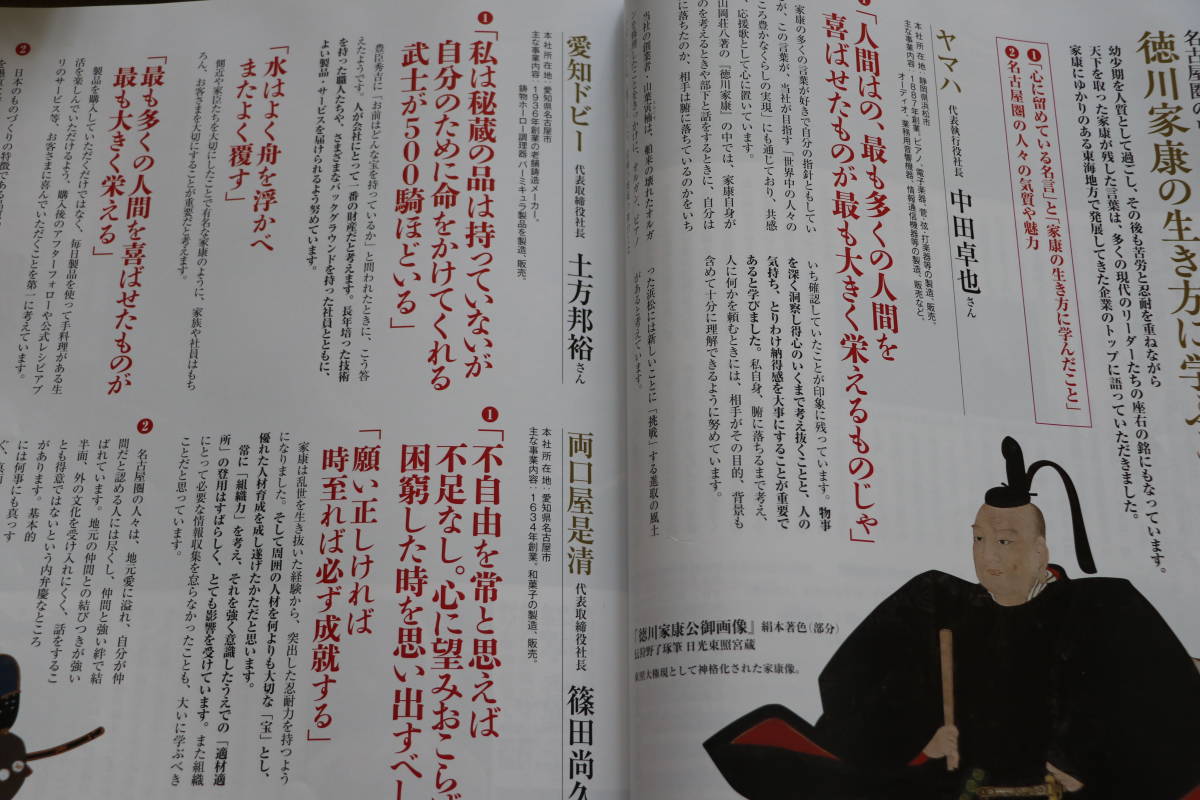 名古屋圏
徳川家康の生き方に学ぶ
幼少期を人質として過ごし、その後も苦労と忍耐を重ねながら
天下を取った家康が残した言葉は、多くの現代のリーダーたちの座右の銘にもなっています。
家康にゆかりのある東海地方で発展してきた企業のトップに語っていただきました。
❶「心に留めている名言」と「家康の生き方に学んだこと」
❷名古屋圏の人々の気質や魅力
ヤマハ 代表執行役社長 中田卓也さん
本社所在地:静岡県浜松市
主な事業内容:1887年創業。ピアノ、電子楽器、管・弦・打楽器等の製造、販売。
オーディオ、業務用音響機器、情報通信機器等の製造、販売など。
「人間はの、最も多くの人間を
喜ばせたものが最も大きく栄えるものじゃ」
家康の多くの言葉が好きで自分の指針としてい
が、この言葉が、当社が目指す「世界中の人々の
ころ豊かなくらしの実現」にも通じており、共感
、応援歌として心に置いています。
山岡荘八著の『徳川家康』の中では、家康自身が
のを考えるときや部下と話をするときに、自分は
に落ちたのか、相手は腑に落ちているのかをいち
いち確認していたことが印象に残っています。物事
を深く洞察し得心のいくまで考え抜くことと、人の
気持ち、とりわけ納得感を大事にすることが重要で
あると学びました。私自身、腑に落ちるまで考え、
人に何かを頼むときには、相手がその目的、背景も
含めて十分に理解できるように努めています。
当社の創業者・山葉寅楠は、舶来の壊れたオルガ
った浜松には新しいことに「挑戦」する進取の風土
があると考えています。
『徳川家康公御画像』絹本著色(部分)
伝狩野了琢筆 日光東照宮蔵
東照大権現として神格化された家康像。
愛知ドビー 代表取締役社長 土方邦裕さん
本社所在地:愛知県名古屋市
主な事業内容:1936年創業の老舗鋳造メーカー。
鋳物ホーロー調理器 バーミキュラ製品を製造、販売。
❶「私は秘蔵の品は持っていないが
自分のために命をかけてくれる
武士が500騎ほどいる」
豊臣秀吉に「お前はどんな宝を持っているか」と問われたときに、こう答
えたようです。人が会社にとって一番の財産だと考えます。長年培った技術
を持った職人たちや、さまざまなバックグラウンドを持った社員とともに、
よい製品・サービスを届けられるよう努めています。
「水はよく舟を浮かべ
またよく覆す」
側近や家臣たちを大切にしたことで有名な家康のように、家族や社員はもち
ろん、お客さまを大切にすることが重要だと考えます。
「最も多くの人間を喜ばせたものが
最も大きく栄える」
製品を購入していただくだけではなく、毎日製品を使って手料理がある生
活を楽しんでいただけるよう、購入後のアフターフォローや公式レシピアプ
リのサービス等、お客さまに喜んでいただくことを第一に考えています。
❷ 日本のものづくりの特徴である
両口屋是清 代表取締役社長 篠田尚久
本社所在地:愛知県名古屋市
主な事業内容:1634年創業。和菓子の製造、販売。
❶「不自由を常と思えば
不足なし。心に望みおこらば
困窮した時を思い出すべし
「願い正しければ
時至れば必ず成就する」
家康は乱世を生き抜いた経験から、突出した忍耐力を持つよう
になりました。そして周囲の人材を何よりも大切な「宝」とし、
優れた人材育成を成し遂げたかただと思います。
常に「組織力」を考え、それを強く意識したうえでの「適材適
所」の登用はすばらしく、とても影響を受けています。また組織
にとって必要な情報収集を怠らなかったことも、大いに学ぶべき
ことだと思っています。
❷ 名古屋圏の人々は、地元愛に溢れ、自分が仲
間だと認める人には尽くし、仲間と強い絆で結
ばれています。地元の仲間との結びつきが強い
半面、外の文化を受け入れにくく、話をするこ
とも得意ではないという内弁慶なところ
があります。基本的
には何事にも真っす